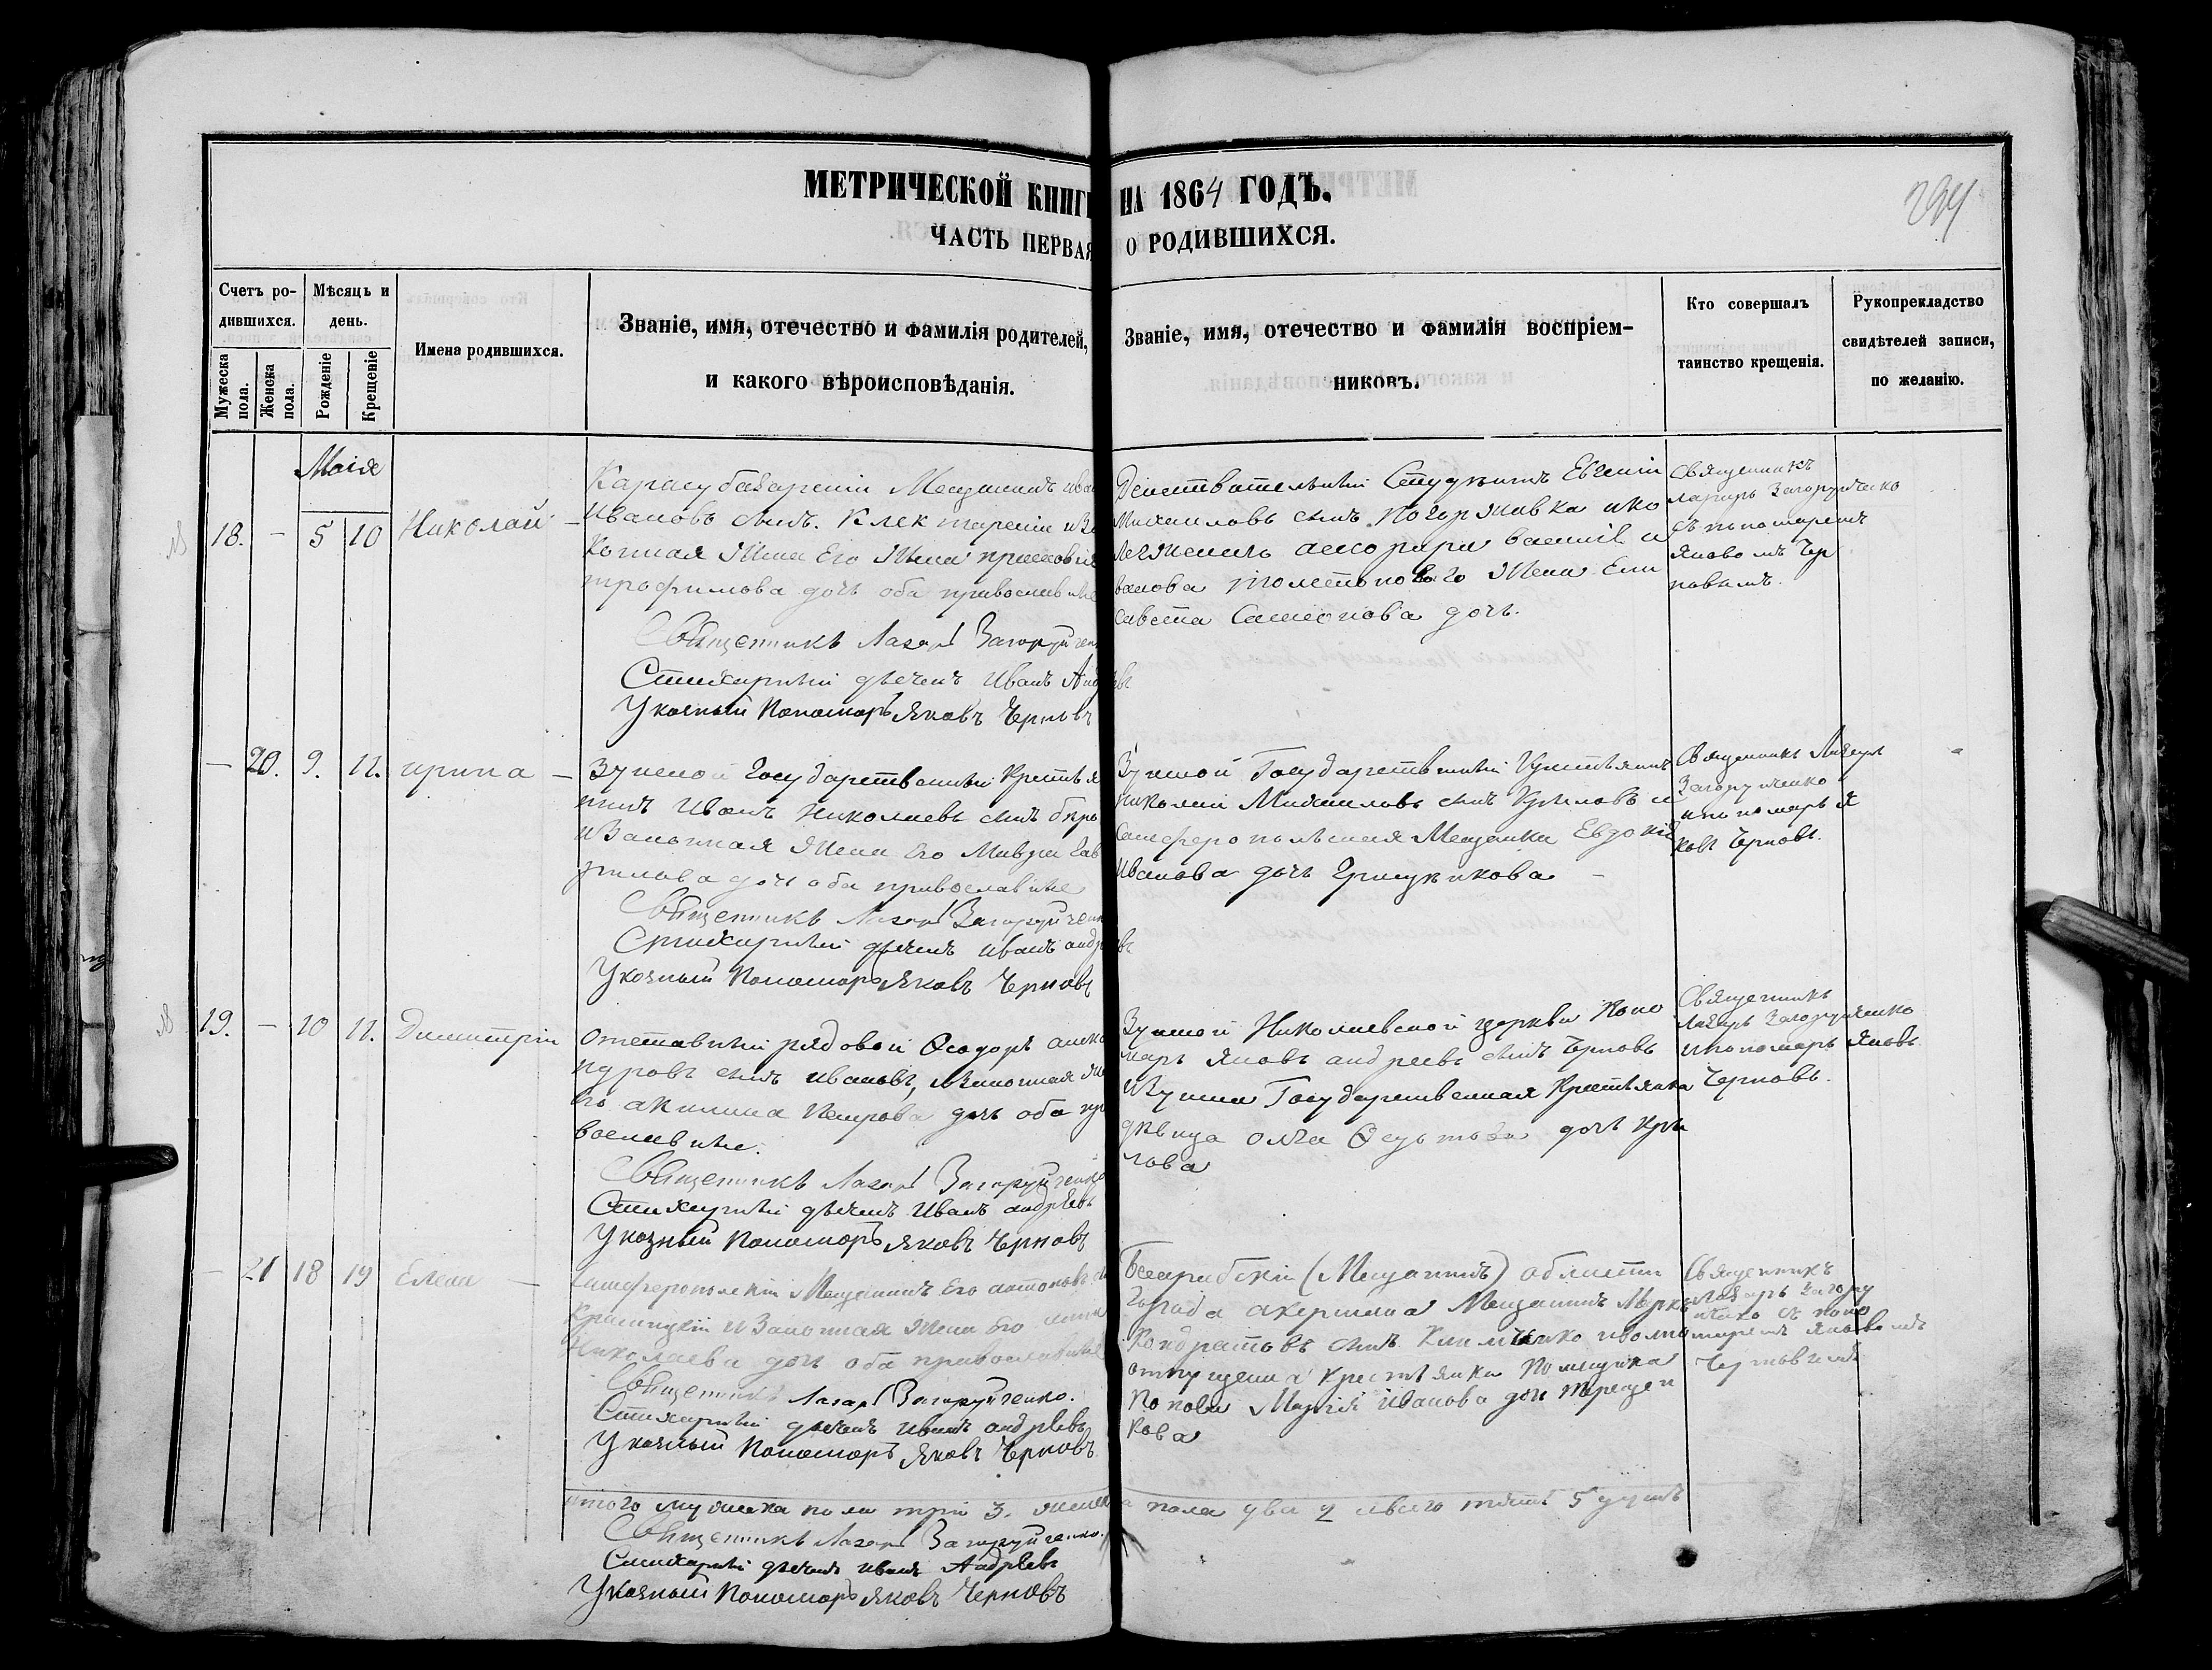 МЕТРИЧЕСКОЙ КНИГИ НА 1864 ГОДЪ.
294
ЧАСТЬ ПЕРВАЯ О РОДИВШИХСЯ.
Счетъ ро-
дившихся.
Мужеска пола.
Женска пола.
Мѣсяцъ и
день.
Рожденіе
Крещеніе
Имена родившихся.
Званіе, имя, отечество и фамилія родителей,
и какого вѣроисповѣданія.
Званіе, имя, отечество и фамилія воспріем-
никовъ.
Кто совершалъ
таинство крещенія.
Рукоприкладство
свидѣтелей записи,
по желанію.
Маія
18. - 5 10 Николай
Карасубазарскій Мещанинъ
Ивановъ сынъ
жена Его
трофимова дочь оба
Священникъ Лазарь Загоруйченко
Стихарный дьячекъ Иванъ Андрѣевъ
Указный Пономарь Яковъ Черновъ
Действительный Студентъ Евгеній
Михаиловъ сынъ
ванова жена Ели
савета дочь.
Священникъ
Лазарь Загоруйченко
съ пономаремъ
Яковомъ Чер
новымъ.
- 20. 9. 11. ирина -
Зуйской Государственный Крестья
нинъ Иванъ Николаевъ сынъ
и Законная Жена Его Мавра Гав
рилова дочь оба православные
Священникъ Лазарь Загоруйченко
Стихарный дьячекъ иванъ андрѣевъ
Указный Пономарь Яковъ Черновъ
Зуйской Государственный Крестьянинъ
николай Михаиловъ сынъ Крыловъ и
Симферопольская Мещанка Евдокія
Иванова дочь
Священникъ Лазарь
Загоруйченко
и пономарь Я
ковъ Черновъ.
19. - 10 11. Димитрій
Отставный рядовой Ѳеодоръ алекса
ндровъ сынъ ивановъ, и Законная же
его акилина Петрова дочь оба пра
вославные.
Священникъ Лазарь Загоруйченко
Стихарный дьячекъ Иванъ андрѣевъ
Указный Пономарь Яковъ Черновъ
Зуйской Николаевской церкви Поно
марь Яковъ андреевъ сынъ Черновъ
Государственная Крестьянка
дѣвица олга дочь Кры
лова
Священникъ
Лазарь Загоруйченко
и пономарь Яковъ
Черновъ.
- 21 18 19 Елена -
Симферопольскій Мещанинъ
и Законная Жена Его
Николаева дочь оба православные
Священникъ Лазарь Загоруйченко.
Стихарный дьячекъ иванъ андрѣевъ
Указный Пономарь Яковъ Черновъ
Бесарабскій (Мещанинъ) области
города акермана Мещанинъ
Кондратовъ сынъ
отпущена Крестьянка Помещика
Попова Марія Иванова дочь Терещен
кова
Священникъ
Лазарь Загоруй
ченко съ поно
маремъ Яковомъ
Черновымъ
итого мужеска пола три 3. женска пола два 2 а всего пять 5 душъ
Священникъ Лазарь Загоруйченко.
Стихарный дьячекъ иванъ Андрѣевъ
Указный Пономарь Яковъ Черновъ